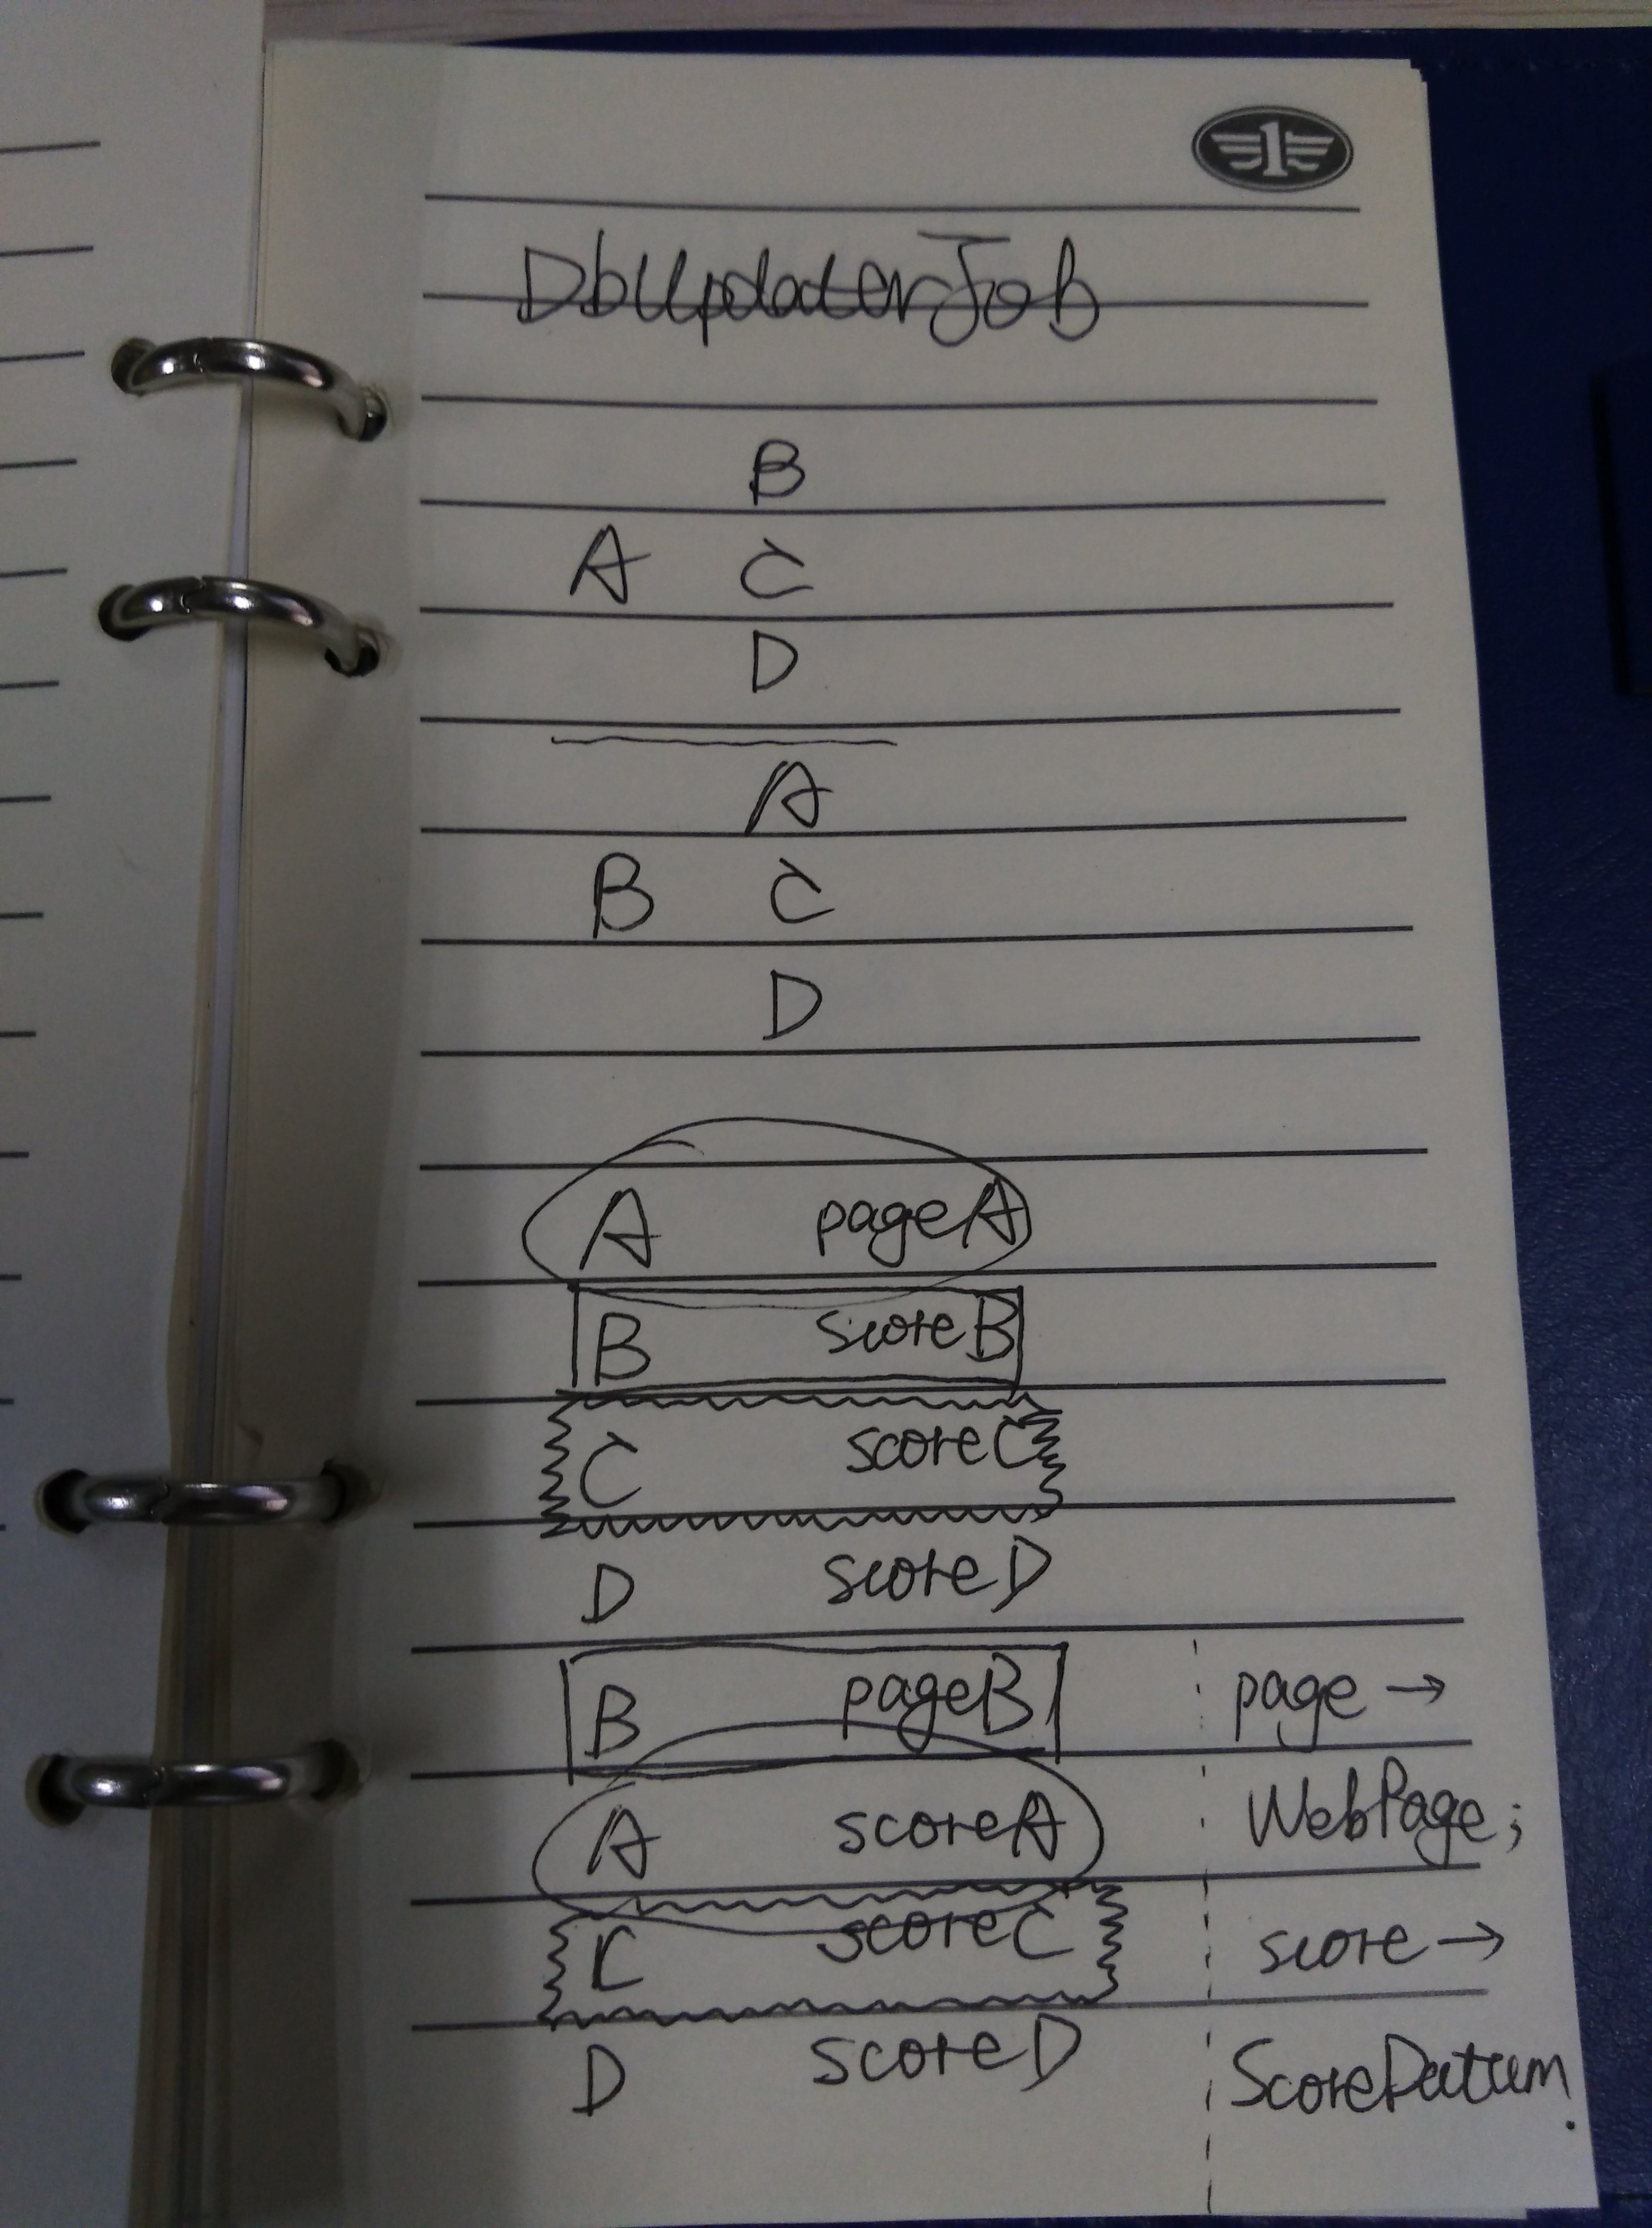 DbUpdaterJob
B
A C
D
A
B C
D
A pageA
B scoreB
C scoreC
D scoreD
B pageB page →
A scoreA WebPage;
C scoreC score →
D scoreD ScoreDatum.